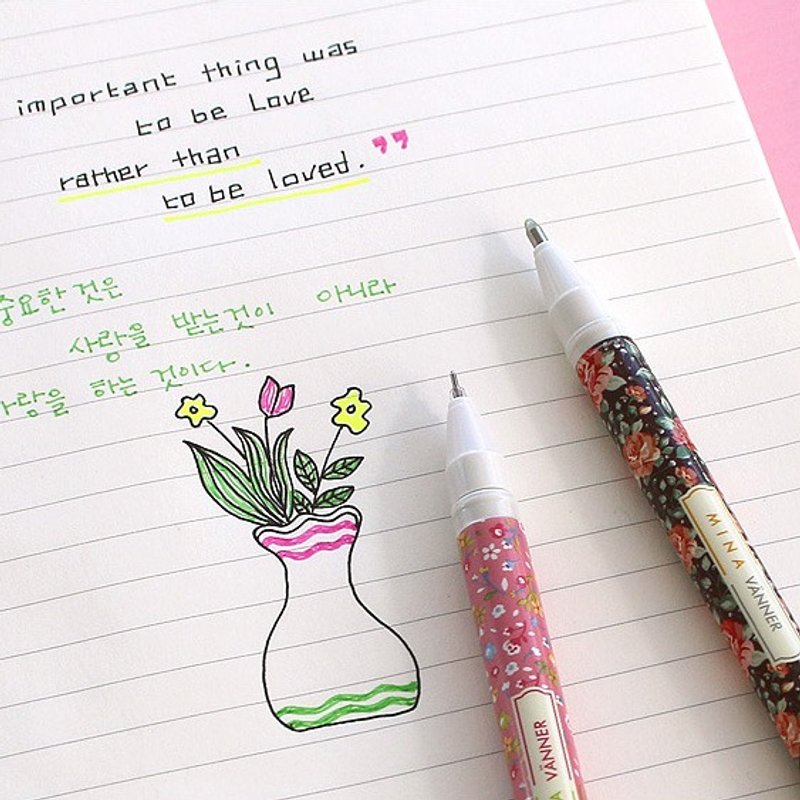 important thing was
to be Love
rather than
to be loved.”
중요한 것은
사랑을 받는것이 아니라
사람을 하는 것이다.
MINA VÄNNER
VÄNNER